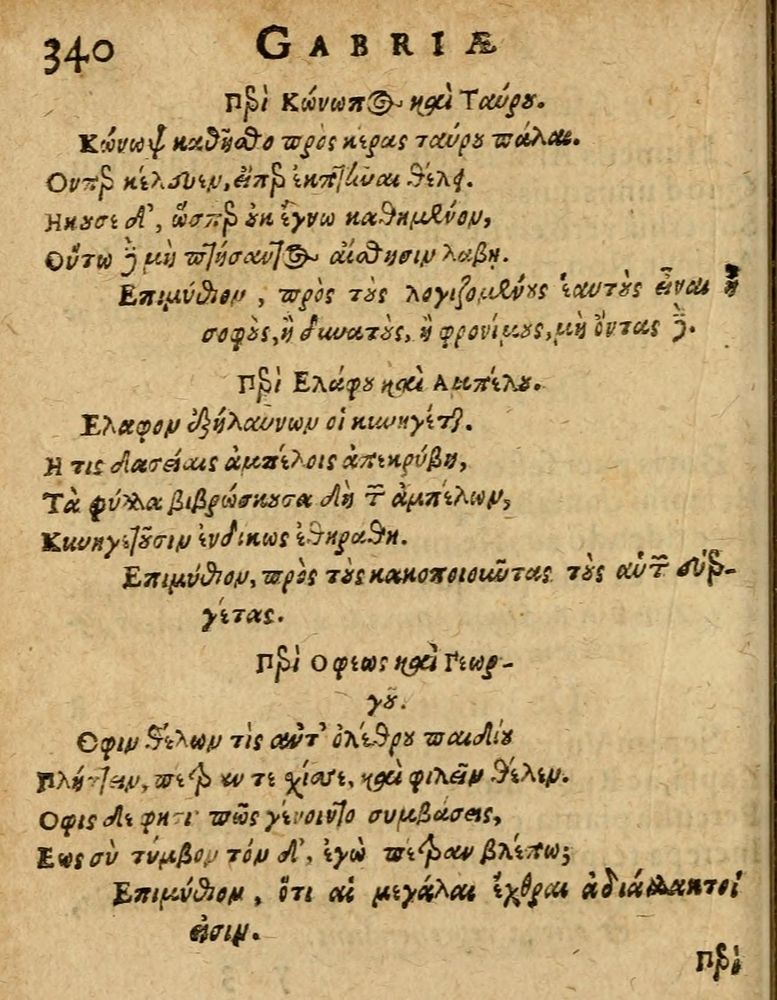 340 GABRIÆ
Περὶ Κώνωπος καὶ Ταύρου.
Κώνωψ καθῆστο πρὸς κέρας ταύρου πάλαι.
Ουπερ κέλευεν, εἴπερ ἐκπτῆναι θέλει.
Ηκουσε δ', ὥσπερ οὐκ ἔγνω καθημένον,
Οὕτω δὲ μὴ πτήσαντος αἴσθησιν λαβῃ.
Επιμύθιον, πρὸς τοὺς λογιζομένους ἑαυτοὺς εἶναι ἢ
σοφοὺς, ἢ δυνατοὺς, ἢ φρονίμους, μὴ ὄντας δέ.
Περὶ Ελάφου καὶ Αμπέλου.
Ελαφον ἐξήλαυνον οἱ κυνηγέται.
Η τις δασείαις ἀμπέλοις ἀπεκρύβη,
Τὰ φύλλα βιβρώσκουσα δὴ τῶν ἀμπέλων,
Κυνηγετοῦσιν ἐνδίκως ἐθηράθη.
Επιμύθιον, πρὸς τοὺς κακοποιοῦντας τοὺς αὑτῶν εὐερ-
γέτας.
Περὶ Οφεως καὶ Γεωρ-
γοῦ.
Οφιν θέλων τὶς αὐτ' ὀλέθρου παιδίου
Πλήττειν, τε καὶ φιλεῖν θέλεν.
Οφις δε φησι πῶς γένοιντο συμβάσεις,
Εως σὺ τύμβον τόν δ', ἐγὼ πέτραν βλέπω;
Επιμύθιον, ὅτι αἱ μεγάλαι ἔχθραι ἀδιάλλακτοί
εἰσιν.
Περὶ